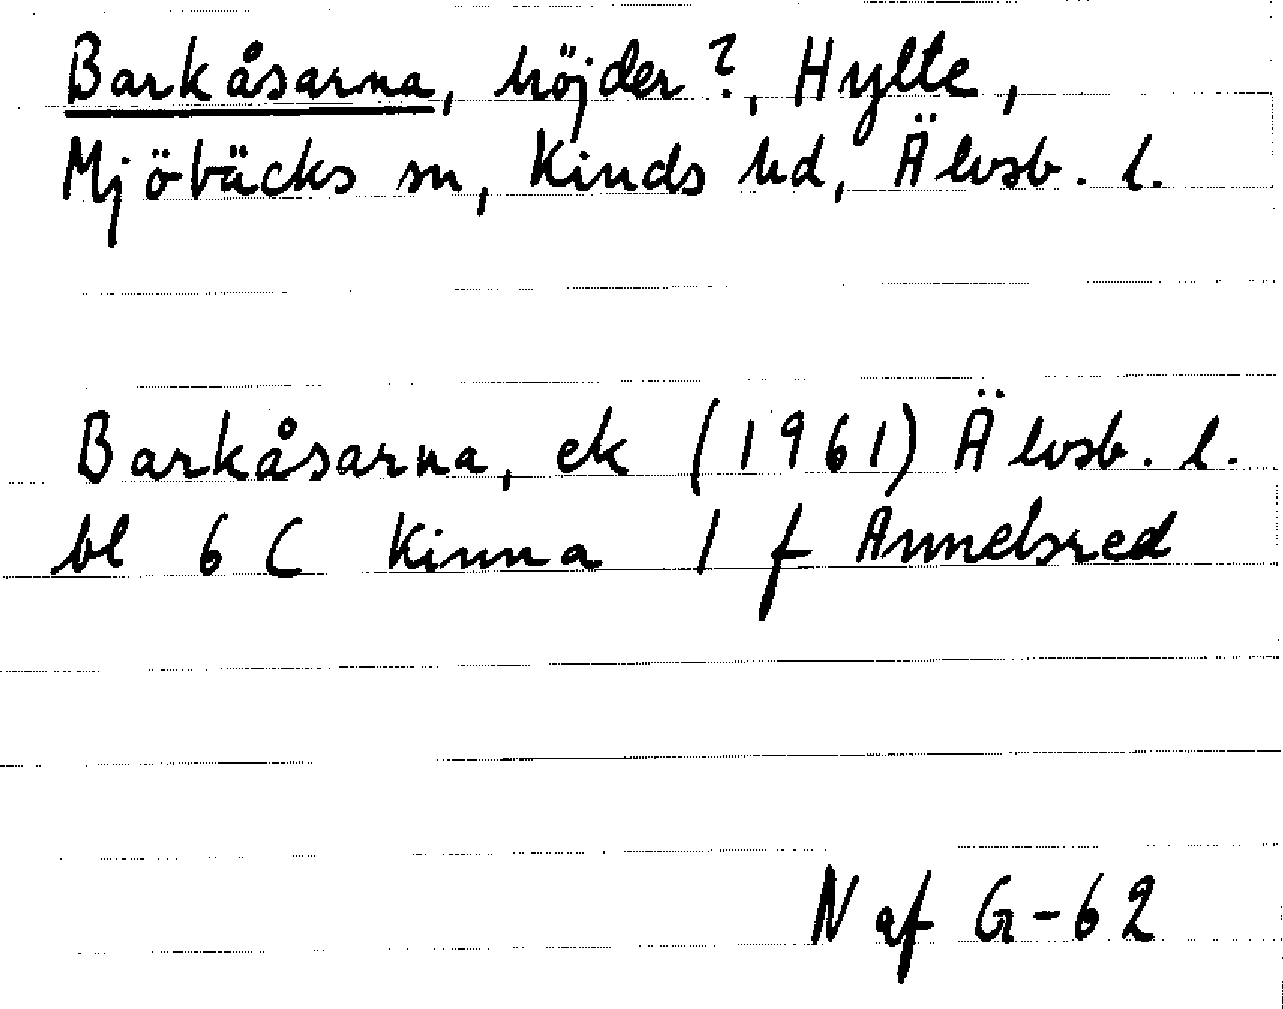 Barkåsarna, höjder?, Hylte,
Mjöbäcks sn, Kinds hd, Älvsb. l.
Barkåsarna, ek (1961) Älvsb. l.
bl 6 C Kinna 1 f Annelsred
N af G-62